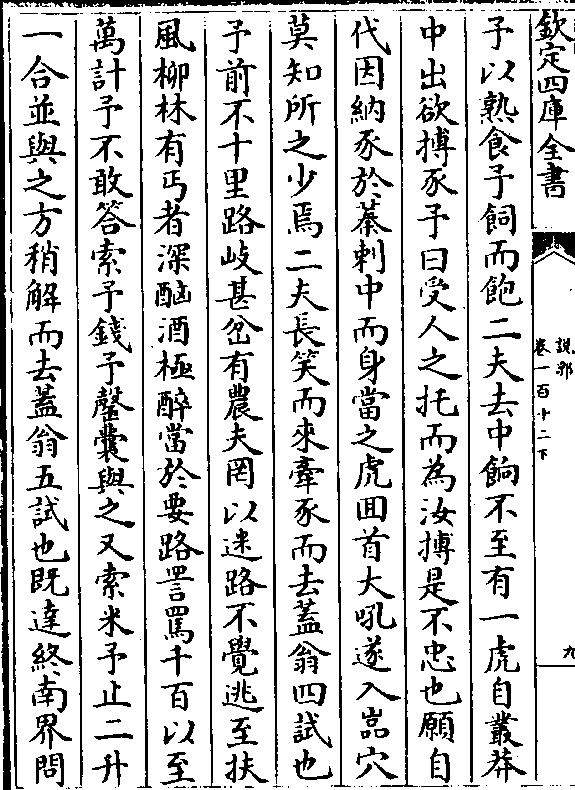 欽定四庫全書
說郛
卷一百十二下
九
予以熟食予飼而飽二夫去中餉不至有一虎自叢莽
中出欲搏豕予曰受人之托而為汝搏是不忠也願自
代因納豕於蓁刺中而身當之虎囬首大吼遂入嵓穴
莫知所之少焉二夫長笑而來牽豕而去蓋翁四試也
予前不十里路岐甚岔有農夫罔以迷路不覺逃至扶
風柳林有丐者深酗酒極醉當於要路詈罵千百以至
萬計予不敢答索予錢予罄囊與之又索米予止二升
一合並與之方稍解而去蓋翁五試也既達終南界問